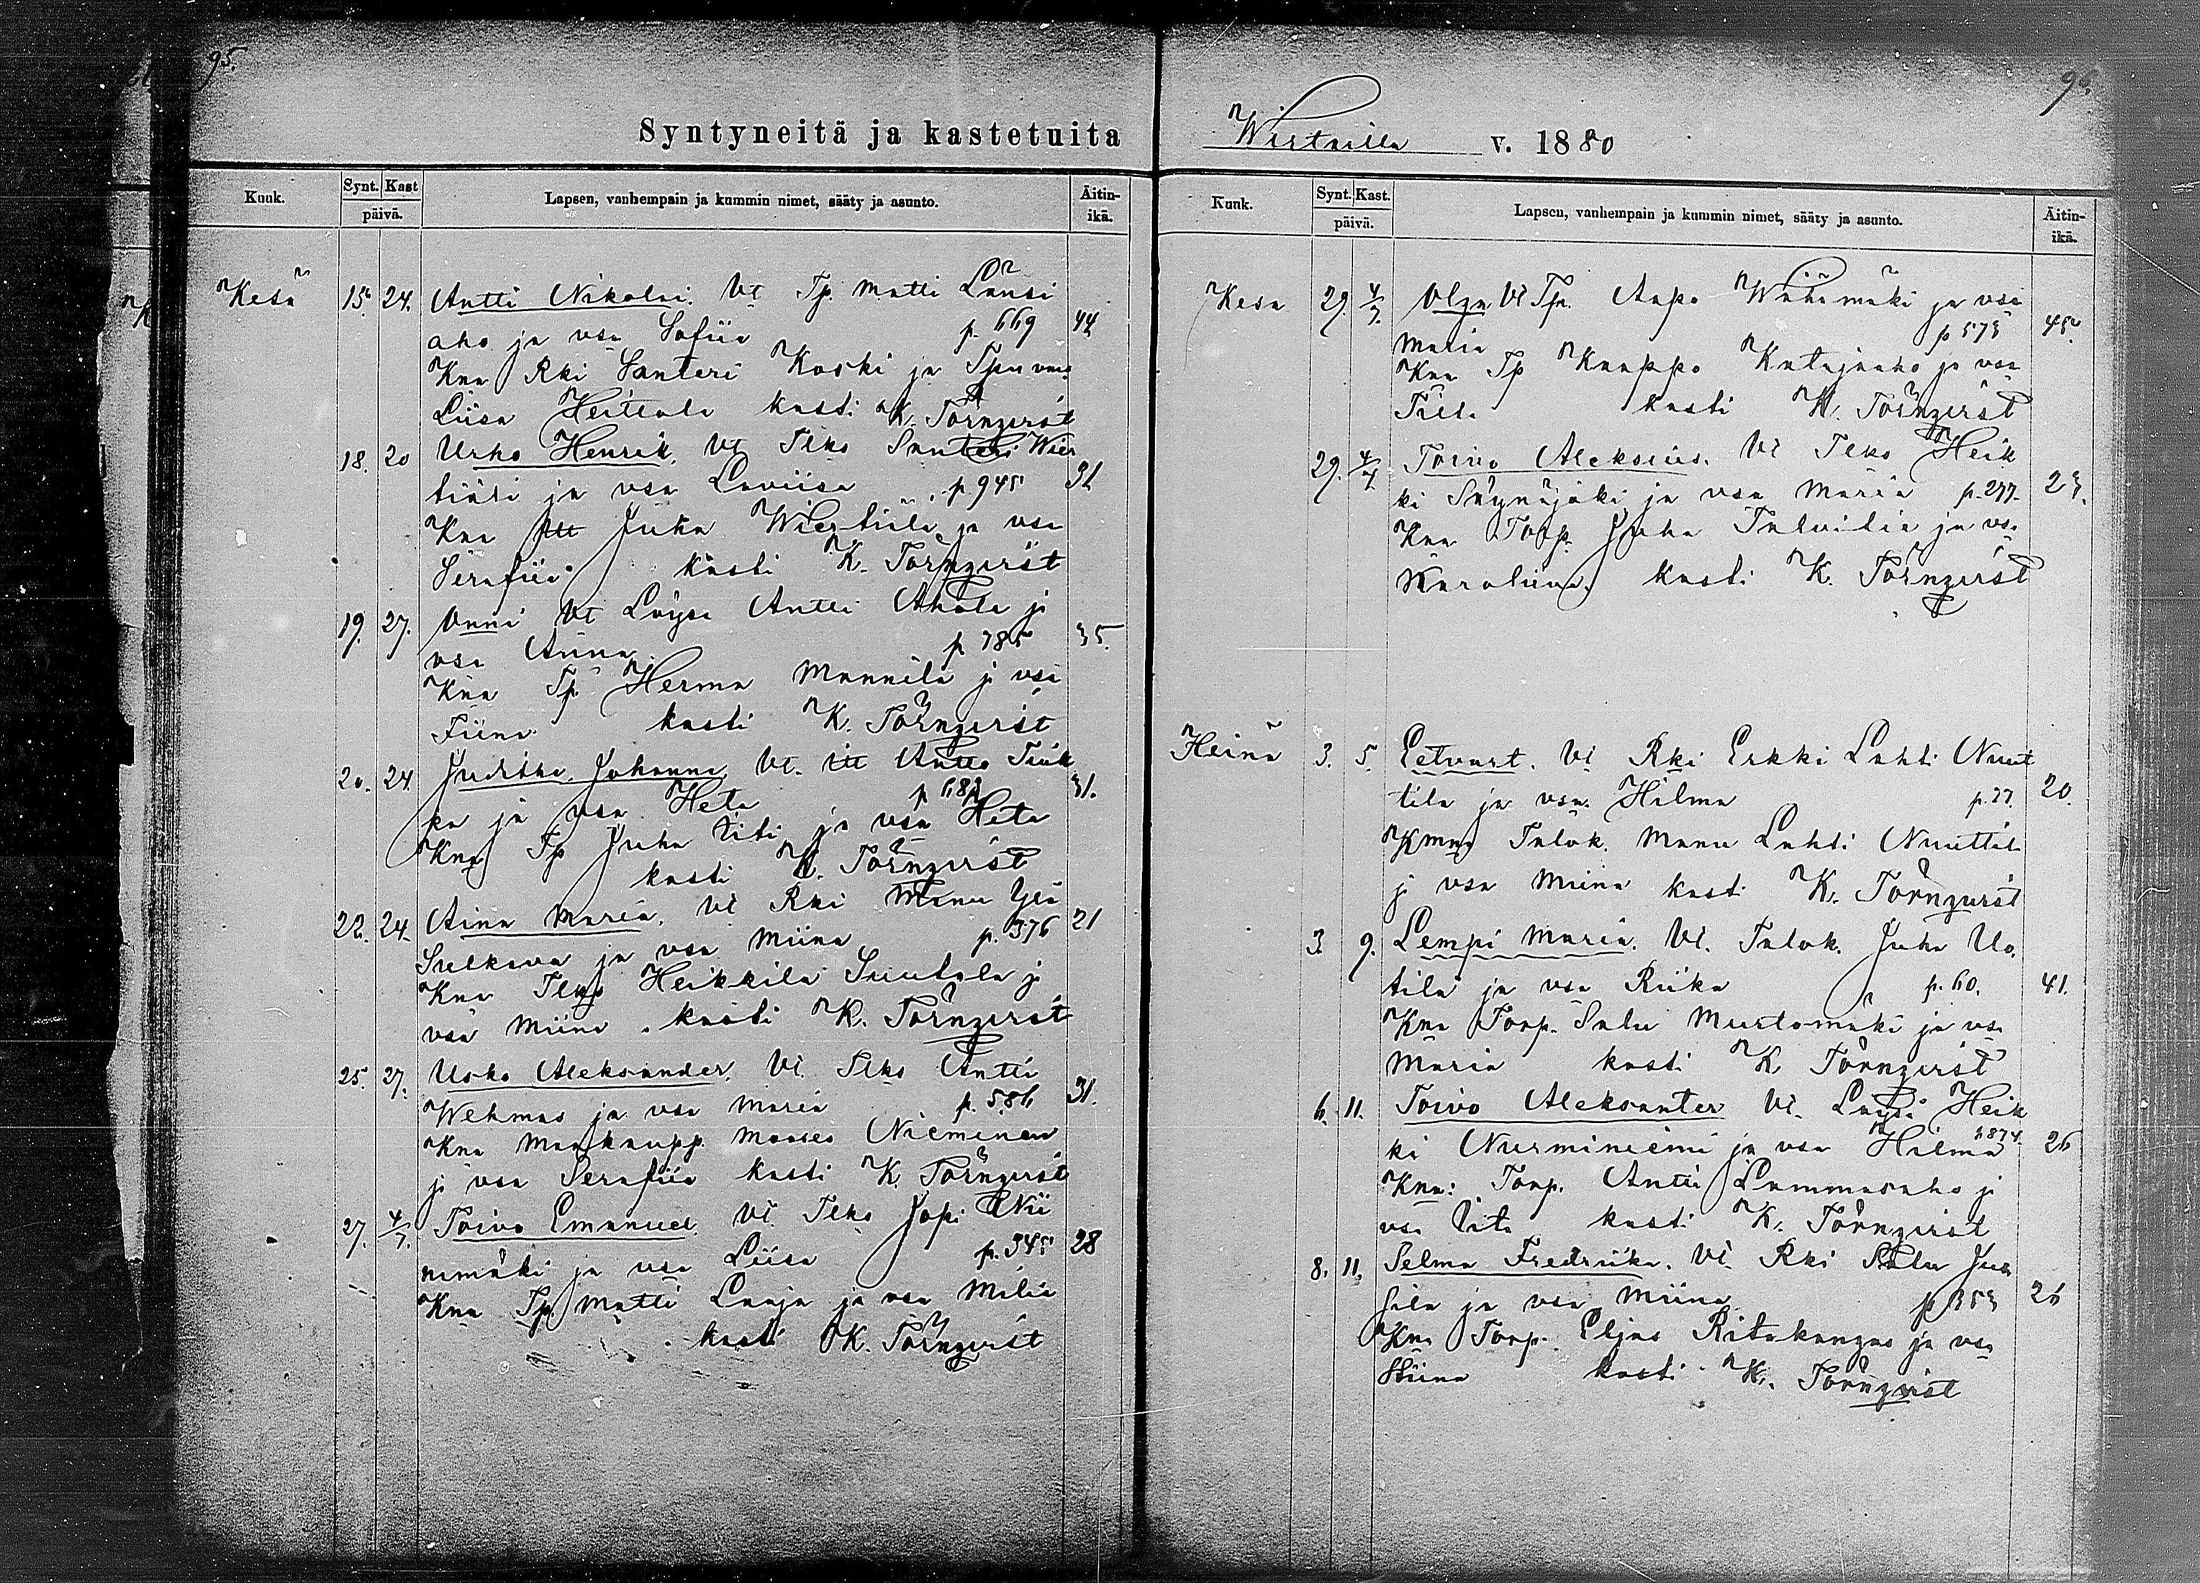 95.
Syntyneitä ja kastetuita
Kuuk. Synt. Kast päivä. Lapsen, vanhempain ja kummin nimet, sääty ja asunto. Äitin-ikä.
Kesä 15. 24. Antti Nikolai. Vt Tp. Matti Länsi
aho ja vsa Sofiia p. 669 44
Knn Rki Santeri Koski ja Tpn vmo
Liisa kasti K. Törnqvist
18. 20 Urho Henrik. Vt Tlks Santeri Wier
tiäli ja vsa Loviisa p. 945 31
Knn Juha Wiertiälä ja vsa
Serafiia kasti K. Törnqvist
19. 27. Onni Vt Löysi Antti Ahola j
vsa Anna p 785 35.
Knn Tp. Herma Mannila j vsa
Fiina kasti K. Törnqvist
20. 24. Johanna. Vt. itt Antto Tiuk
ka ja vsa Heta p 682 31.
Knn Tp Juha ja vsa Heta
kasti K. Törnqvist
22. 24. Aina Maria. Vt Rki Manu Ylä
Sulkava ja vsa Miina p. 376 21
Knn Tlks Heikkilä j
vsa Miina. kasti K. Törnqvist
25. 27. Usko Aleksander. Vt. Tlks Antti
Wehmas ja vsa Maria p. 586 31.
Knn Maakaupp. Mooses Nieminen
j vsa Serafiia kasti K. Törnqvist
27. 4/7. Toivo Emanuel. Vt. Tlks Jopi Nii
nimäki ja vsa Liisa p. 345 28
Knn Tp Matti Laaja ja vsa Milia
kasti K. Törnqvist
96.
Wirtailla v. 1880
Kuuk. Synt. Kast. päivä. Lapsen, vanhempain ja kummin nimet, sääty ja asunto. Äitin-ikä.
Kesä 29. 4/7. Olga Vt Tp. Aapo Wähämäki ja vsa
Maria p 575 45.
Knn Tp Kaappo Katajaaho ja vsa
Tilda kasti K. Törnqvist
29. 4/7. Toivo Aleksius. Vt Tlks Heik
ki Säynäjoki ja vsa Maria p. 277. 23.
Knn Torp. Juha Talvitie ja vsa
Karoliina. kasti K. Törnqvist
Heinä 3. 5. Eetvart. Vt Rki Erkki Lahti Nuut
tila ja vsa Hilma p. 77. 20.
Kmna Talok. Manu Lahti Nuuttil
j vsa Miina kasti K. Törnqvist
3. 9. Lempi Maria. Vt. Talok. Juha Uo
tila ja vsa Riika p. 60. 41.
Knn Torp. Salu Murtomäki ja vsa
Maria kasti K Törnqvist
6. 11. Toivo Aleksanter Vt. Löysi Heik
ki Nurminiemi ja vsa Hilma p 874. 26
Knn: Torp. Antti Lammasaho j
vsa kasti K. Törnqvist
8. 11. Selma Fredriika. Vt. Rki Salu Jus
sila ja vsa Miina p. 353 26
Knn Torp. Eljas Ritakangas ja vsa
Stiina kasti K. Törnqvist